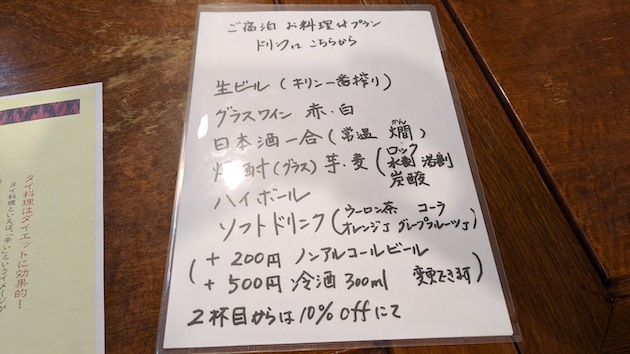 ご宿泊 お料理付プラン
ドリンクは こちらから
生ビール (キリン一番搾り)
グラスワイン 赤・白
日本酒一合 (常温 燗)
かん
焼酎 (グラス) 芋・麦 (ロック
水割 湯割
炭酸
ハイボール
ソフトドリンク (ウーロン茶 コーラ
オレンジJ グレープフルーツJ)
(+200円 ノンアルコールビール
+500円 冷酒 300ml 変更できます)
2杯目からは10% offにて
タイ料理はダイエットに効果的!
タイ料理といえば、「辛い」というイメージが